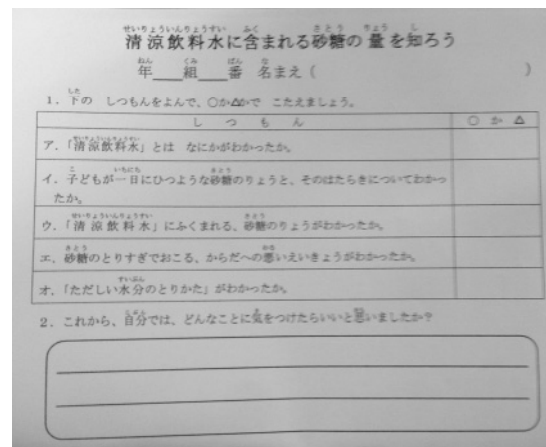 清涼飲料水に含まれる砂糖の量を知ろう
年___組___番 名まえ( )
1.下の しつもんをよんで、○か△かで こたえましょう。
しつもん ○か△
ア.「清涼飲料水」とは なにかがわかったか。
イ.子どもが一日にひつような砂糖のりょうと、そのはたらきについてわかっ
たか。
ウ.「清涼飲料水」にふくまれる、砂糖のりょうがわかったか。
エ.砂糖のとりすぎでおこる、からだへの悪いえいきょうがわかったか。
オ.「ただしい水分のとりかた」がわかったか。
2.これから、自分では、どんなことに気をつけたらいいと思いましたか?